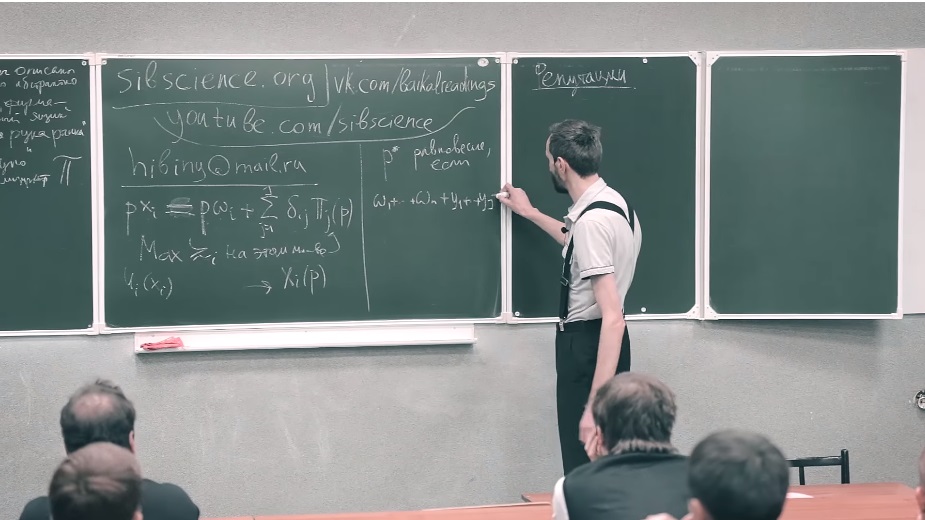 описано
абстрактно
язык
"рука рынка"
π
sibscience.org | vk.com/baikalreadings
youtube.com/sibscience
hibiny@mail.ru
p xᵢ = pωᵢ + Σ δᵢⱼ πⱼ(p)
Max ≿ᵢ на этом мн-ве
uᵢ(xᵢ) → Xᵢ(p)
p* равновесие,
если
ω₁+··+ωₙ + y₁+··+yⱼ =
Репутации